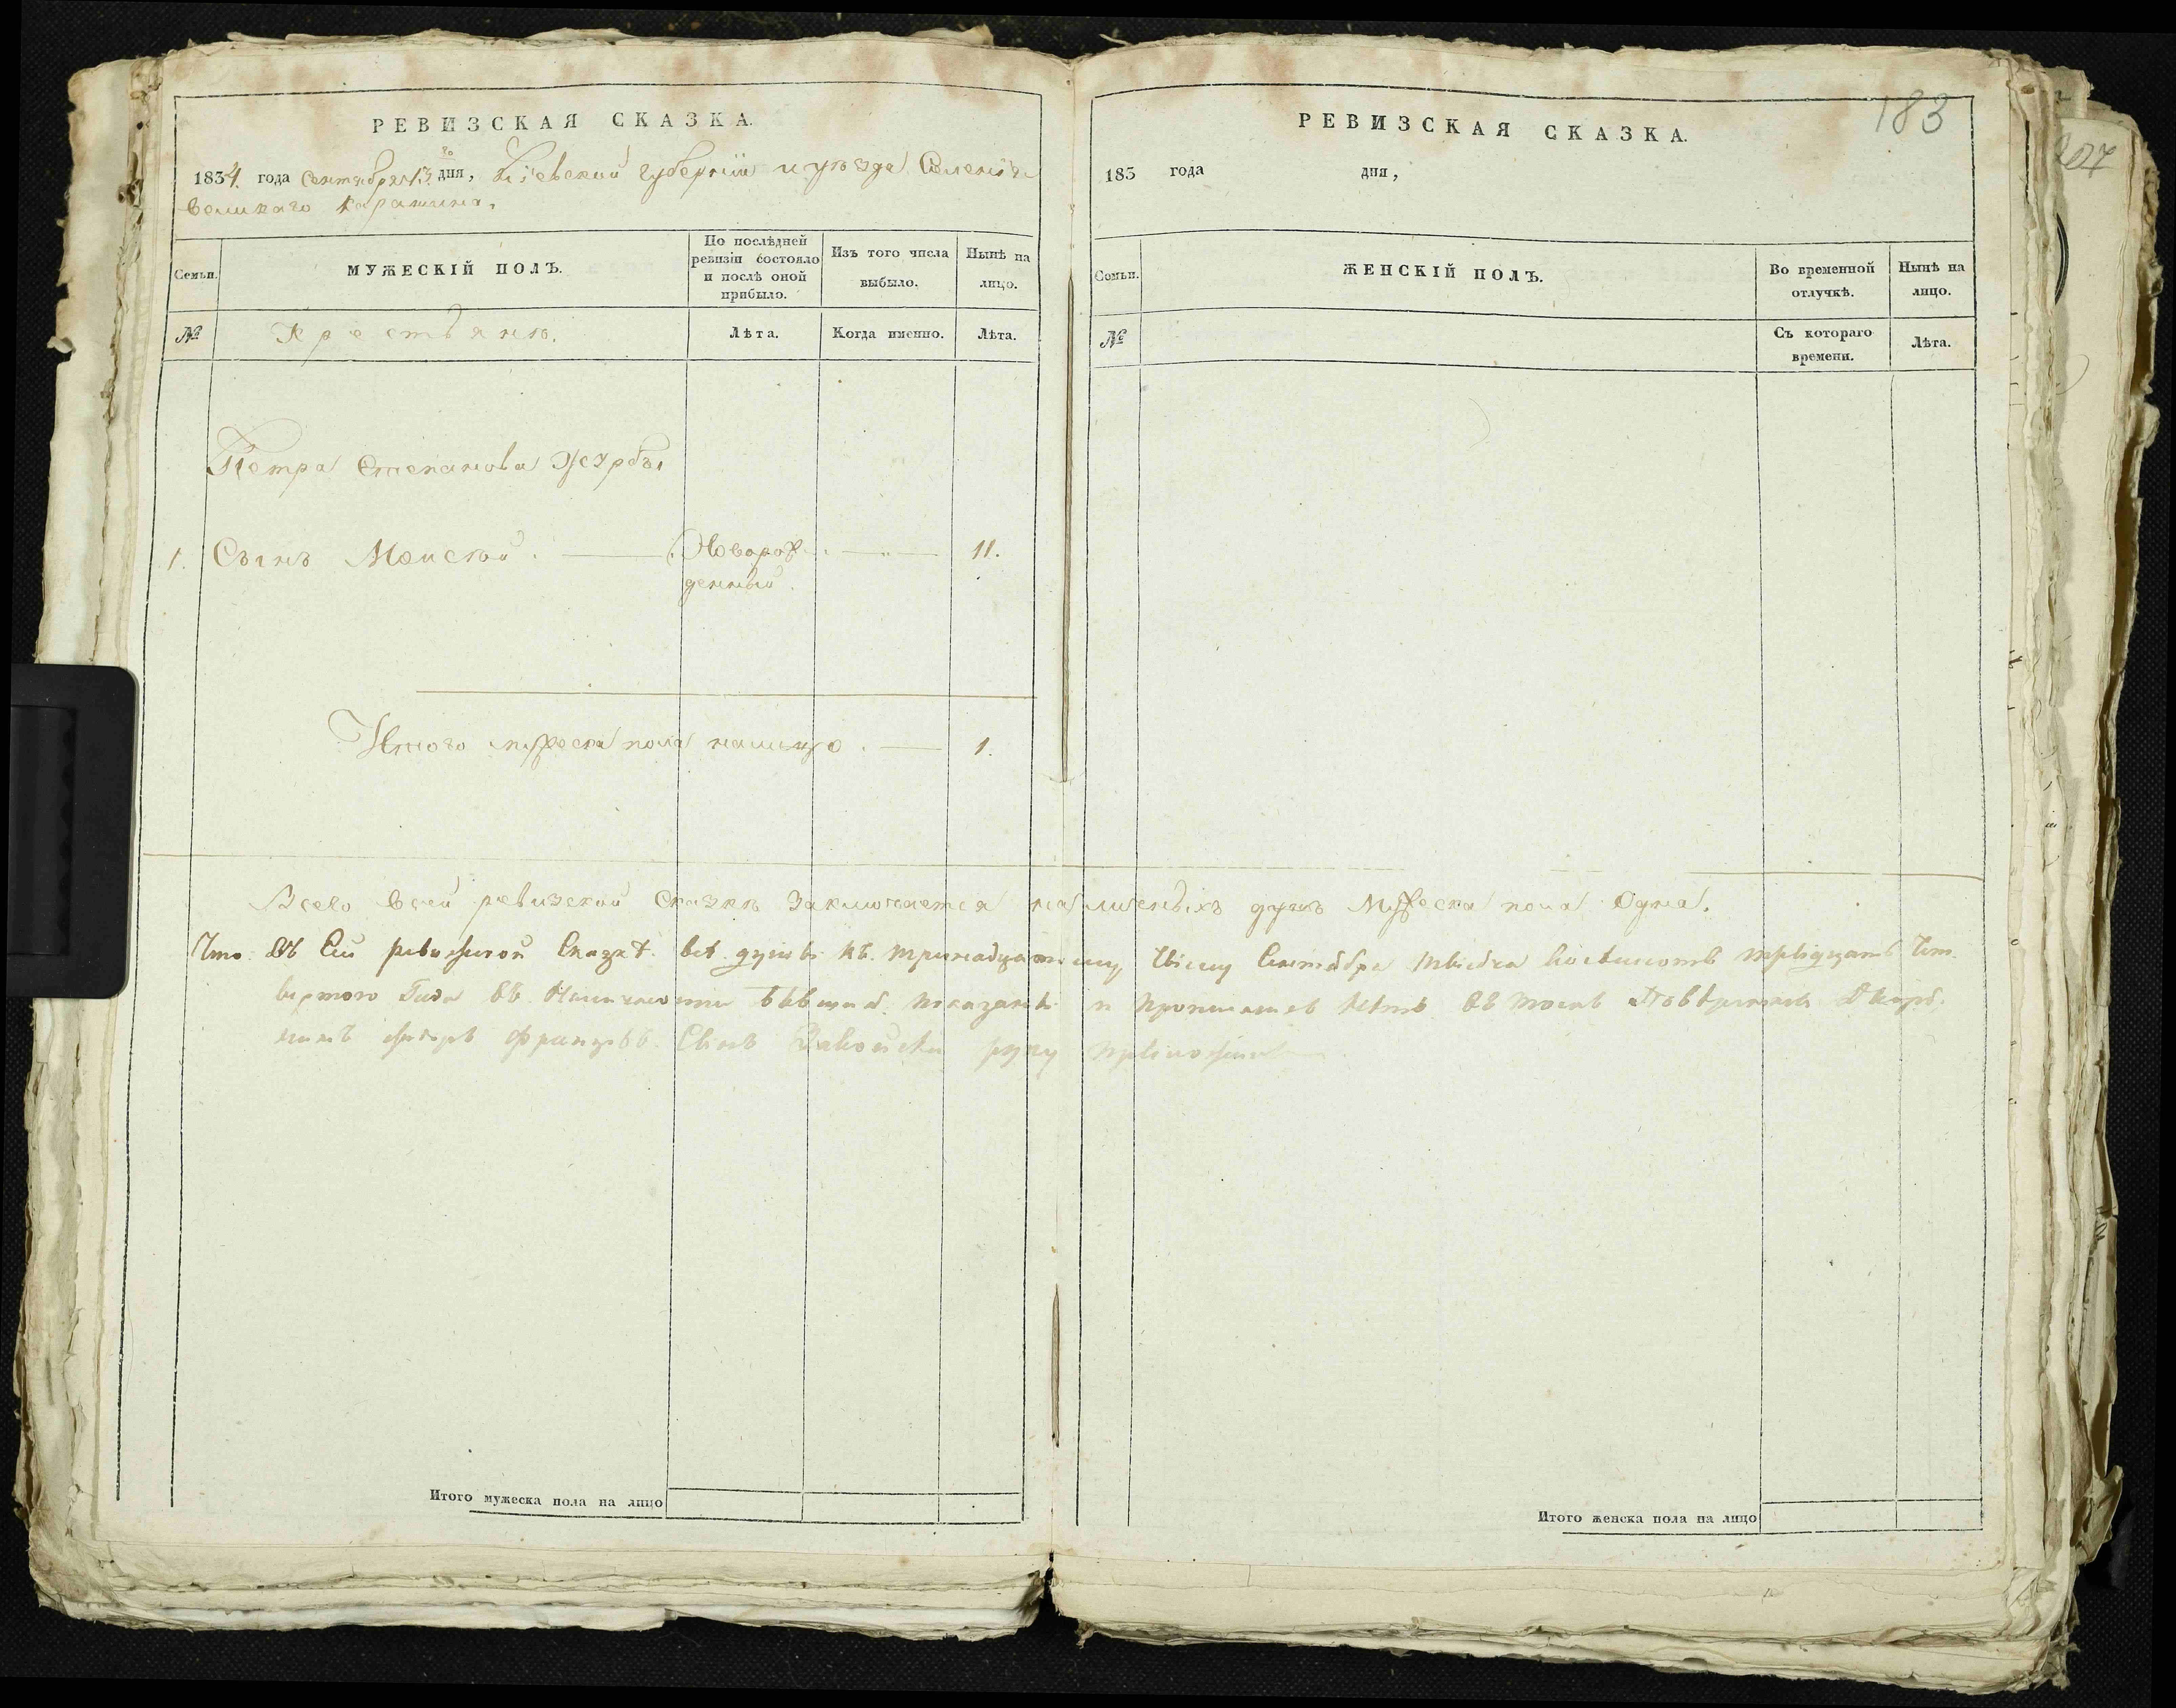 РЕВИЗСКАЯ СКАЗКА.
1834. года Сентября 13го дня, Кіевской губерніи и уѣзда Селенія
великаго Карашина.
Семьи.
МУЖЕСКІЙ ПОЛЪ.
По послѣдней ревизіи состояло и послѣ оной прибыло.
Изъ того числа выбыло.
Нынѣ на лицо.
№
Крестьянѣ.
Лѣта.
Когда именно.
Лѣта.
Петра Степанова
1. Сынъ Моисѣй. Новорож 11.
денный.
Итого мужеска пола налицо. 1.
Всего всей ревизской сказкѣ заключается наличныхъ душъ мужеска пола одна.
Что въ сей ревижской сказкѣ всѣ душы къ тринадцатому Числу Сентября тысеча восѣмсотъ тридцать Чет
вертого Года въ наличности показаны и лѣтъ въ томъ
руку
Итого мужеска пола на лицо
183
РЕВИЗСКАЯ СКАЗКА.
183 года дня,
Семьи.
ЖЕНСКІЙ ПОЛЪ.
Во временной отлучкѣ.
Нынѣ на лицо.
№
Съ котораго времени.
Лѣта.
Итого женска пола на лицо